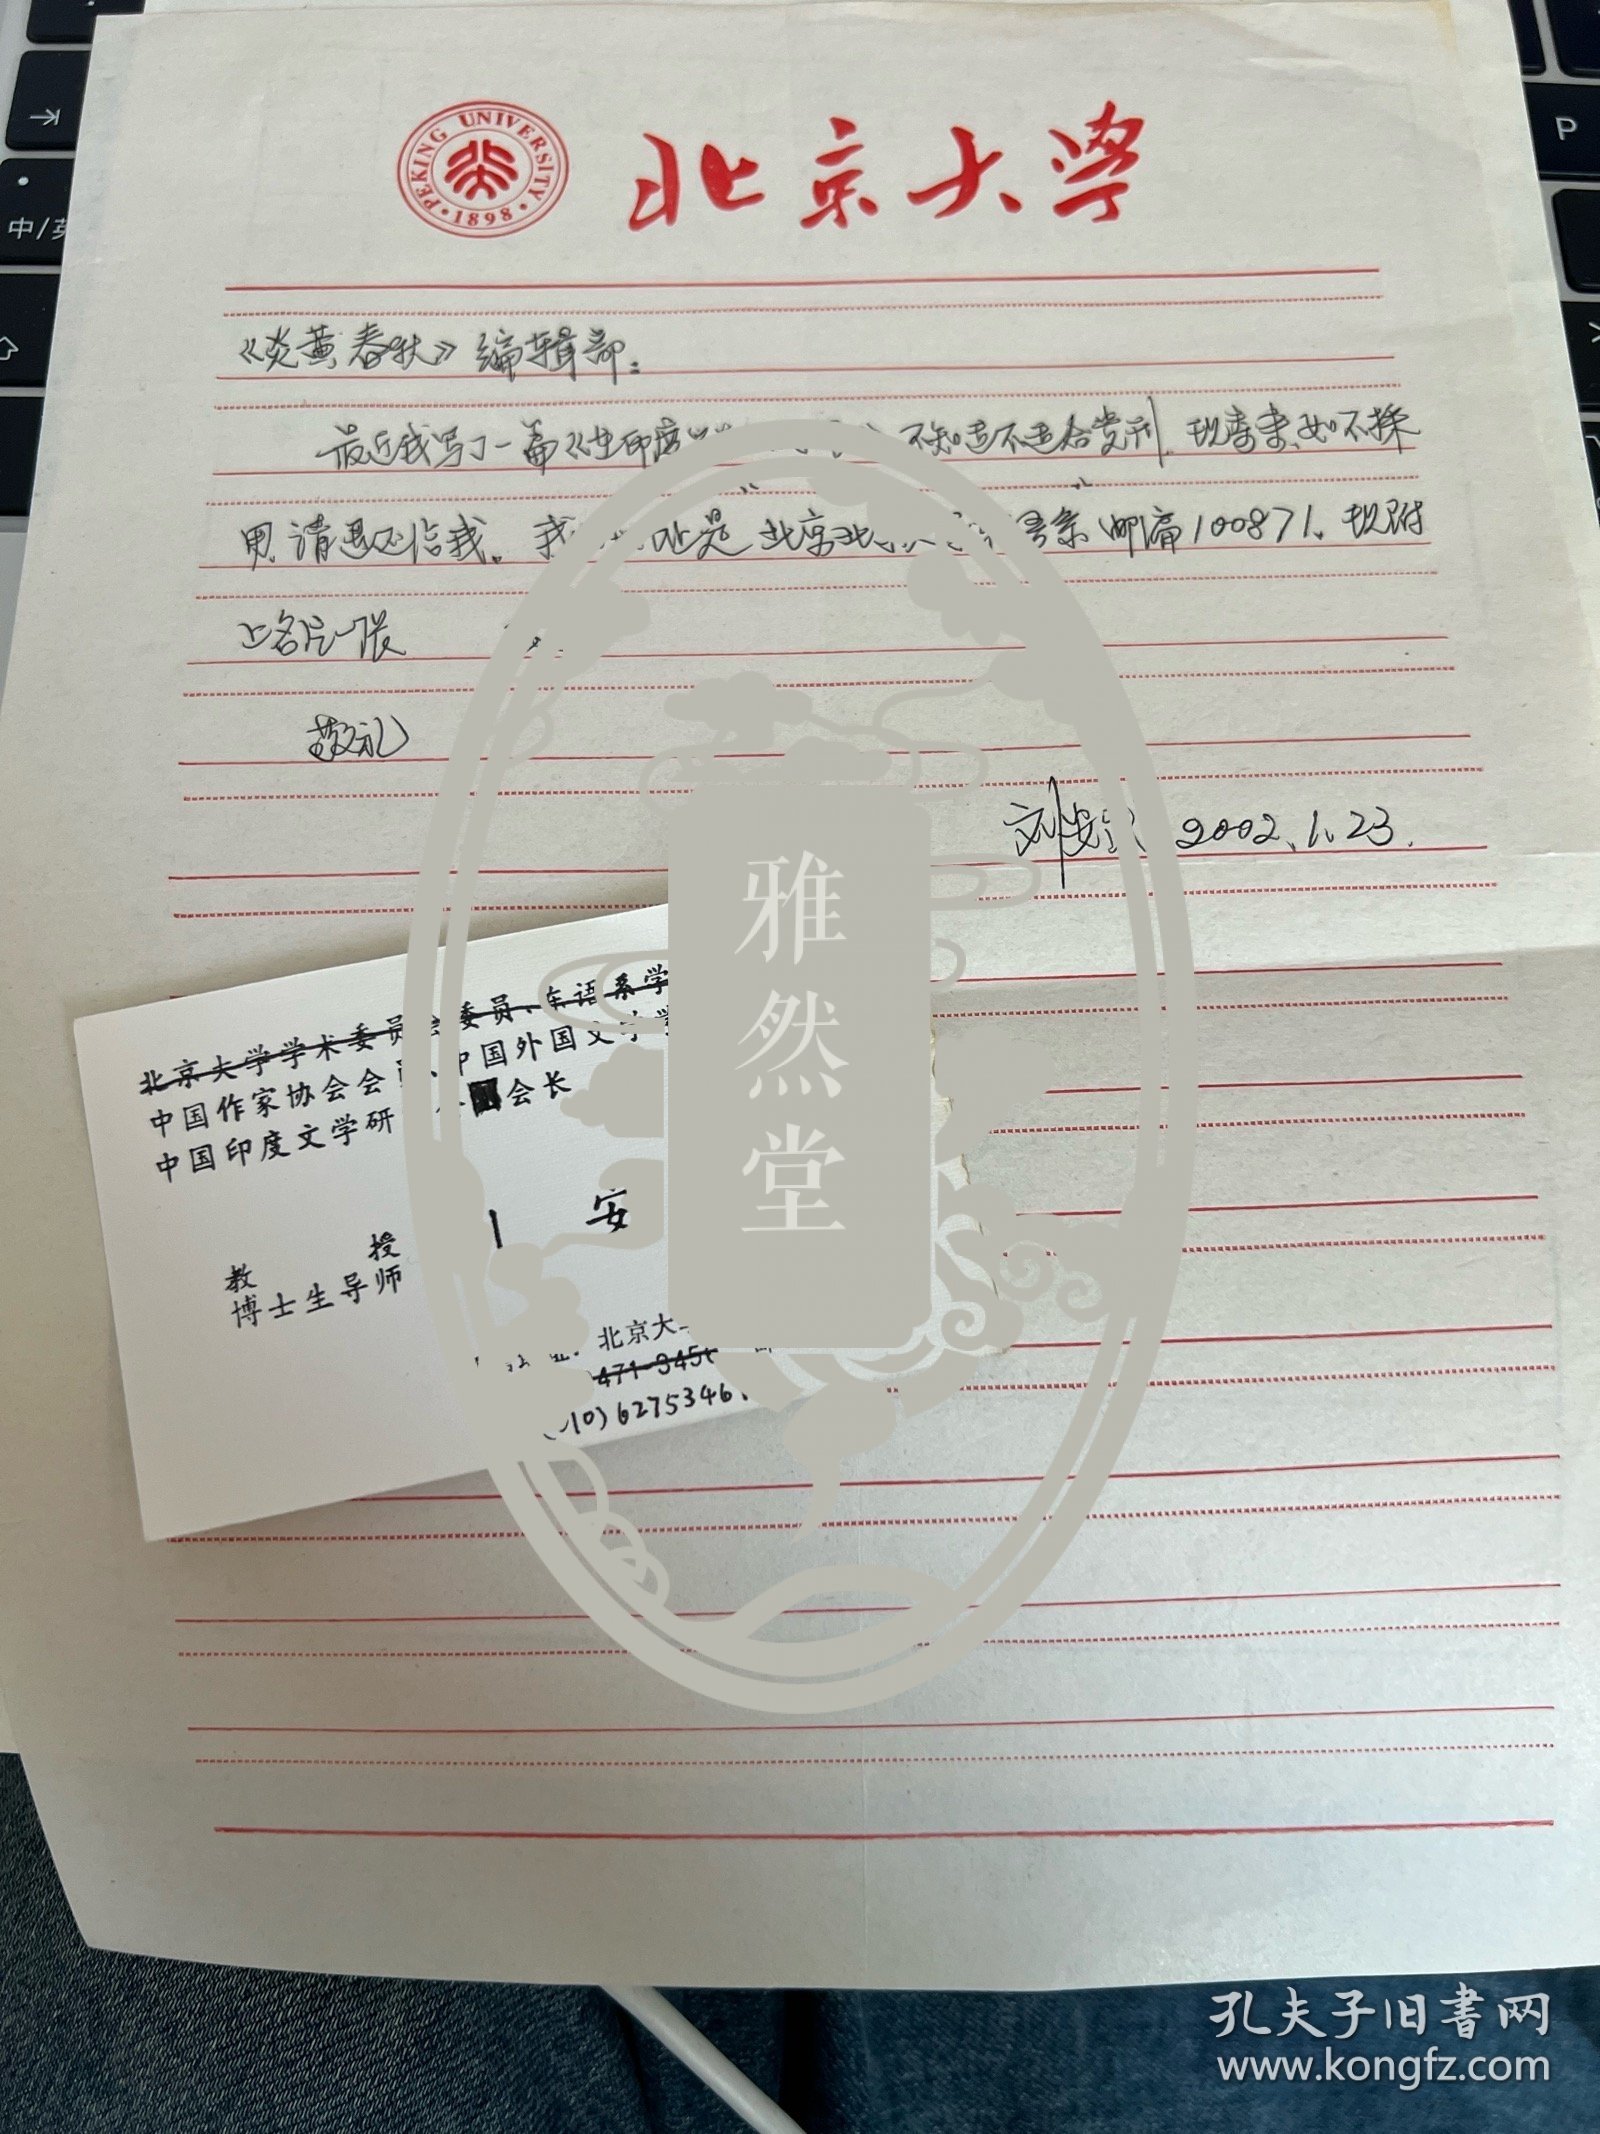 PEKING UNIVERSITY
1898
北京大学
《炎黄春秋》编辑部:
最近我写了一篇《在印度 不知适不适合贵刊,现寄来,如不採
用,请退还给我。我 址是 北京北 系 邮编100871。现附
上名片一张
敬礼
刘安 2002.1.23.
北京大学学术委员会委员、东语系学
中国作家协会会员、中国外国文学学
中国印度文学研 会长
安
教授
博士生导师
北京大
471-345
10)6275346
雅然堂
中/英
P
孔夫子旧书网
www.kongfz.com